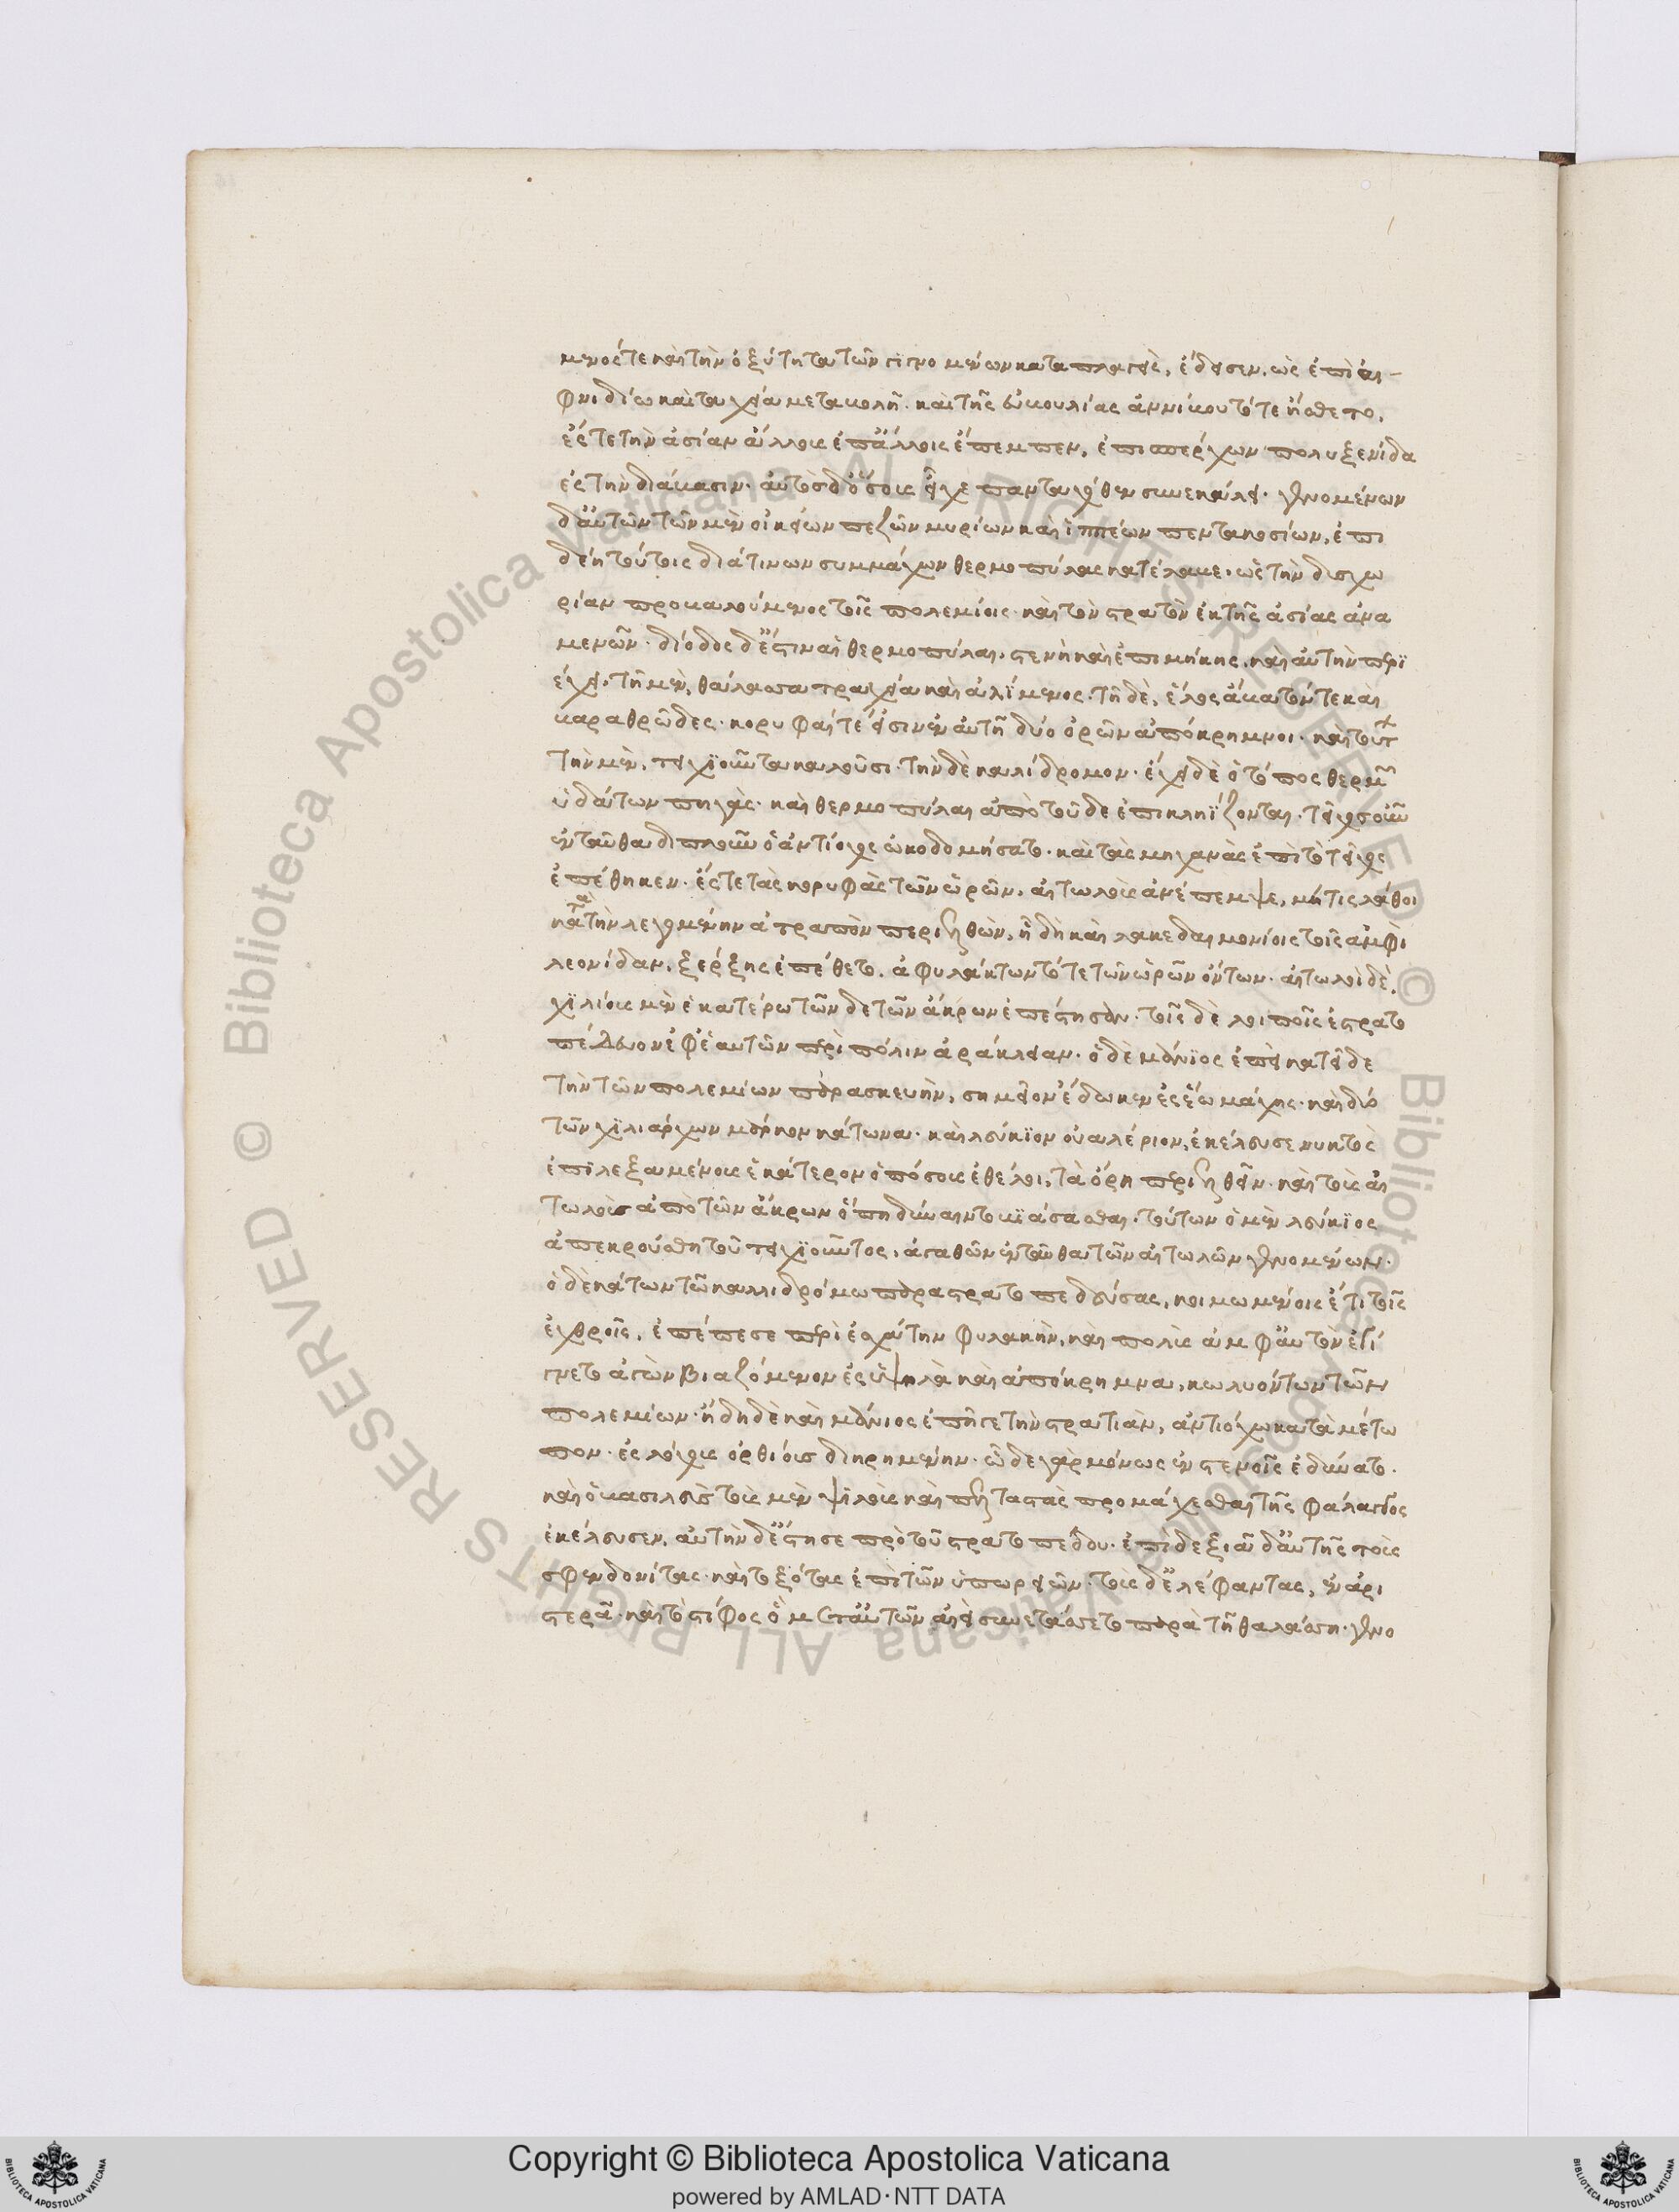 μενός τε καὶ τὴν ὀξύτητα τῶν γιγνομένων καταπλαγεὶς, ἔδεισεν. ὡς ἐπὶ αἰ-
φνιδίω καὶ ταχεία μεταβολῆ. καὶ τῆς εὐβουλίας ἀννίβου τότε ἤσθετο.
ἔς τε τὴν ἀσίαν ἄλλους ἐπ᾽ἄλλοις ἔπεμπεν, ἐπισπέρχων πολυξενίδα
ἐς τὴν διάβασιν. αὐτὸς δ᾽ὅσους εἶχε πανταχόθεν συνεκάλει. γενομένων
δ᾽αὐτῶν τῶν μὲν οἰκείων πεζῶν μυρίων καὶ ἱππέων πεντακοσίων, ἐπὶ
δὲ ἢ τούτοις διά τινων συμμάχων θερμοπύλας κατέλαβε. ὡς τὴν δυσχω
ρίαν προβαλούμενος τοῖς πολεμίοις. καὶ τὸν στρατὸν ἐκ τῆς ἀσίας ἀνα
μενῶν. δίοδος δ᾽ἔστιν αἱ θερμοπύλαι. στενὴ καὶ ἐπιμήκης. καὶ αὐτὴν περι
έχει. τῆ μὲν, θάλασσα τραχεία καὶ ἀλίμενος. τῆ δὲ, ἕλος ἄβατόν τε καὶ
βαραθρῶδες. κορυφαί τέ εἰσιν ἐν αὐτῆ δύο ὀρῶν ἀπόκρημνοι. καὶ τούτ
τὴν μὲν, τειχιοῦντα καλοῦσι. τὴν δὲ καλίδρομον. ἔχει δὲ ὁ τόπος θερμῶν
ὑδάτων πηγὰς. καὶ θερμοπύλαι ἀπὸ τοῦδε ἐπικληΐζονται. τεῖχος οὖν
ἐνταῦθα διπλοῦν ὁ ἀντίοχος ὠκοδομήσατο. καὶ τὰς μηχανὰς ἐπὶ τὸ τεῖχος
ἐπέθηκεν. ἔς τε τὰς κορυφὰς τῶν ὀρῶν. αἰτωλοὺς ἀνέπεμψε, μή τις λάθοι
κατὰ τὴν λεγομένην ἀτραπὸν περιελθὼν, ἧ δὴ καὶ λακεδαιμονίοις τοῖς ἀμφὶ
λεονίδαν. ξέρξης ἐπέθετο. ἀφυλάκτων τότε τῶν ὀρῶν ὄντων. αἰτωλοὶ δὲ.
χιλίους μὲν ἑκατέρω τῶν δε τῶν ἄκρων ἐπέστησαν. τοῖς δὲ λοιποῖς ἐστρατο
πέδευον ἐφ᾽ἑαυτῶν περὶ πόλιν ἀράκλειαν. ὁ δὲ μάνιος ἐπεὶ κατεῖδε
τὴν τῶν πολεμίων παρασκευὴν, σημεῖον ἔδωκεν ἐς ἕω μάχης. καὶ δύο
τῶν χιλιάρχων μάρκον κάτωνα. καὶ λεύκιον οὐαλέριον, ἐκέλευσε νυκτὸς
ἐπιλεξαμένους ἑκάτερον ὁπόσους ἐθέλοι, τὰ ὄρη περιελθεῖν. καὶ τοὺς αἰ
τωλοὺς ἀπὸ τῶν ἄκρων ὅπη δύναιντο βιάσασθαι. τούτων ὁ μὲν λεύκιος
ἀπεκρούσθη τοῦ τειχιοῦντος, ἀγαθῶν ἐνταῦθα τῶν αἰτωλῶν γενομένων.
ὁ δὲ κάτων τῶ καλλιδρόμω παραστρατοπεδεύσας, κοιμωμένοις ἔτι τοῖς
ἐχθροῖς, ἐπέπεσε περὶ ἐσχάτην φυλακὴν, καὶ πολὺς ἀμφ᾽αὐτὸν ἐγί
γνετο ἀγὼν βιαζόμενον ἐς ὑψηλὰ καὶ ἀπόκρημνα, κωλυόντων τῶν
πολεμίων. ἤδη δὲ καὶ μάνιος ἐπῆγε τὴν στρατιὰν, ἀντιόχω κατὰ μέτω
πον. ἐς λόχους ὀρθίους διηρημένην. ὧδε γὰρ μόνως ἐν στενοῖς ἐδύνατο.
καὶ ὁ βασιλεὺς τοὺς μὲν ψιλοὺς καὶ πελταστὰς προμάχεσθαι τῆς φάλαγγος
ἐκέλευσεν, αὐτὴν δ᾽ἔστησε πρὸ τοῦ στρατοπέδου. ἐπὶ δεξιὰ δ᾽αὐτῆς τοὺς
σφενδονίτας. καὶ τοξότας ἐπὶ τῶν ὑπωρειῶν. τοὺς δ᾽ἐλέφαντας, ἐν ἀρι
στερᾶ. καὶ τὸ στίφος ὃ μετ᾽αὐτῶν αἰεὶ συνετάσσετο παρὰ τῆ θαλάσση. γενο
Copyright © Biblioteca Apostolica Vaticana
powered by AMLAD·NTT DATA